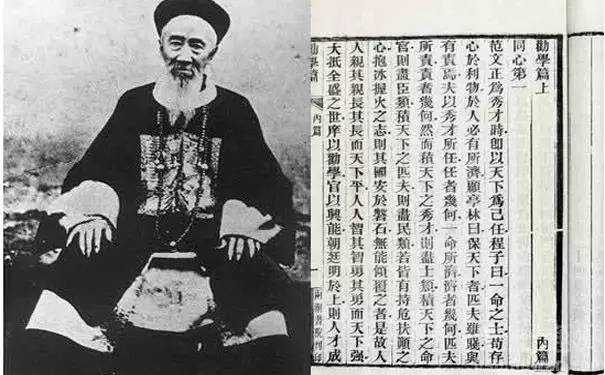 內篇
勸學篇上
同心第一
范文正爲秀才時卽以天下爲己任程子曰一命之士苟存
心於利物於人必有所濟顧亭林曰保天下者匹夫雖賤與
有責焉夫以秀才所任任者幾何一命所濟濟者幾何匹夫
所責責者幾何然而積天下之秀才則盡士類積天下之命
官則盡臣類積天下之匹夫則盡民類若皆有持危扶顛之
心抱冰握火之志則其國安於磐石無能傾覆之者是故人
人親其親長其長而天下平人人智其智勇其勇而天下强
大抵全盛之世庠以勸學官以興能朝廷明於上則人才成
勸學篇
內篇